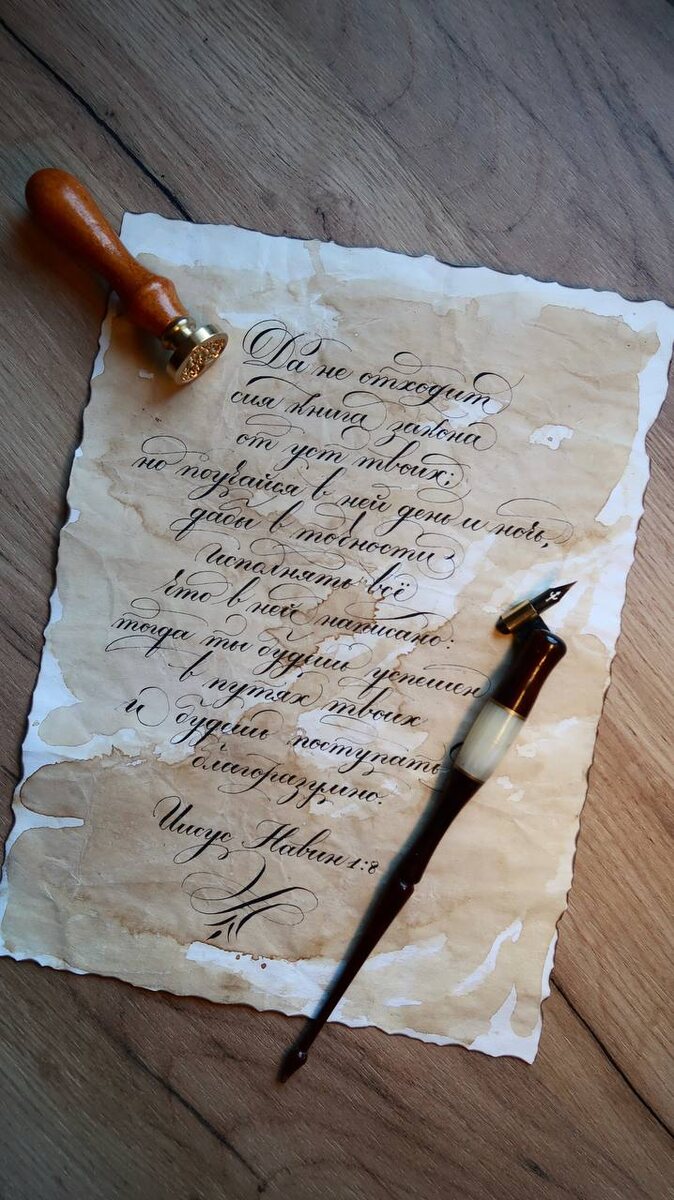 Да не отходит
сия книга закона
от уст твоих;
но поучайся в ней день и ночь,
дабы в точности
исполнять всё
что в ней написано:
тогда ты будешь успешен
в путях твоих
и будешь поступать
благоразумно.
Иисус Навин 1:8